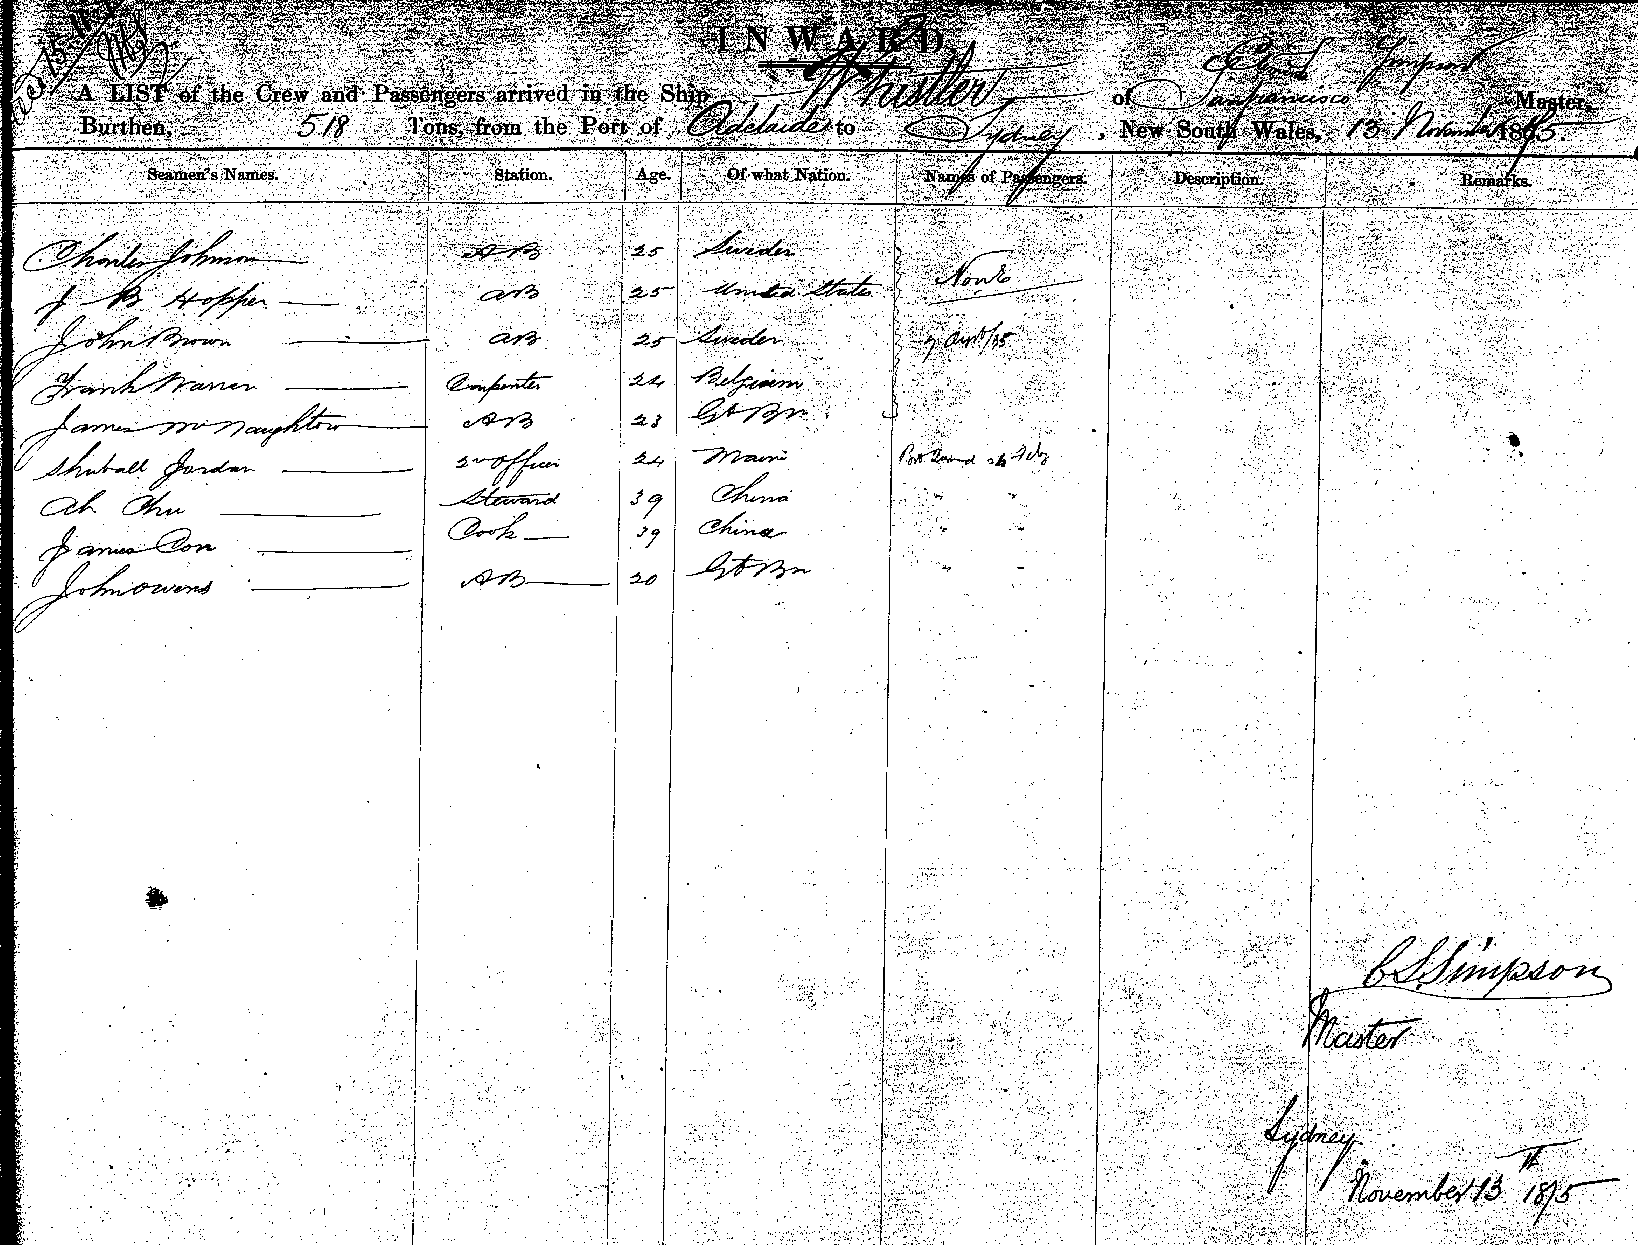 INWARD.
A LIST of the Crew and Passengers arrived in the Ship Whistler of Sanfrancisco Simpson Master,
Burthen, 518 Tons, from the Port of Adelaide to Sydney, New South Wales, 13 November 1875.
Seamen's Names. Station. Age. Of what Nation. Names of Passengers. Description. Remarks.
Charles Johnson AB 25 Sweden
J B Hopper AB 25 United States None
John Brown AB 25 Sweden
Frank Warren Carpenter 24 Belgium
James McNaughton AB 23 Gt Brn
Shuball Jordan 2nd Officer 24 Maine
Ah Chu Steward 39 China " "
James Con Cook 39 China " "
John Owens AB 20 Gt Brn " "
C S Simpson
Master
Sydney
November 13th 1875